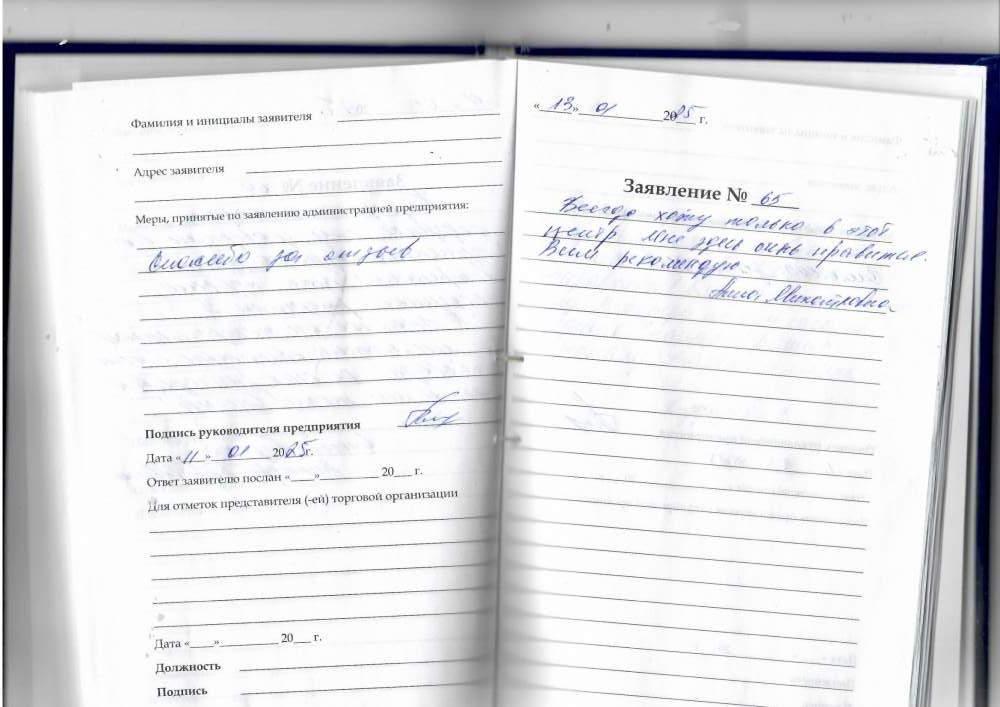 Фамилия и инициалы заявителя
Адрес заявителя
Меры, принятые по заявлению администрацией предприятия:
Спасибо за отзыв
Подпись руководителя предприятия
Дата «11» 01 2025г.
Ответ заявителю послан «____»__________ 20___ г.
Для отметок представителя (-ей) торговой организации
Дата «____»__________ 20___ г.
Должность
Подпись
«13» 01 2025 г.
Заявление № 65
Всегда хожу только в этот
центр мне здесь очень нравится.
Всем рекомендую
Анна